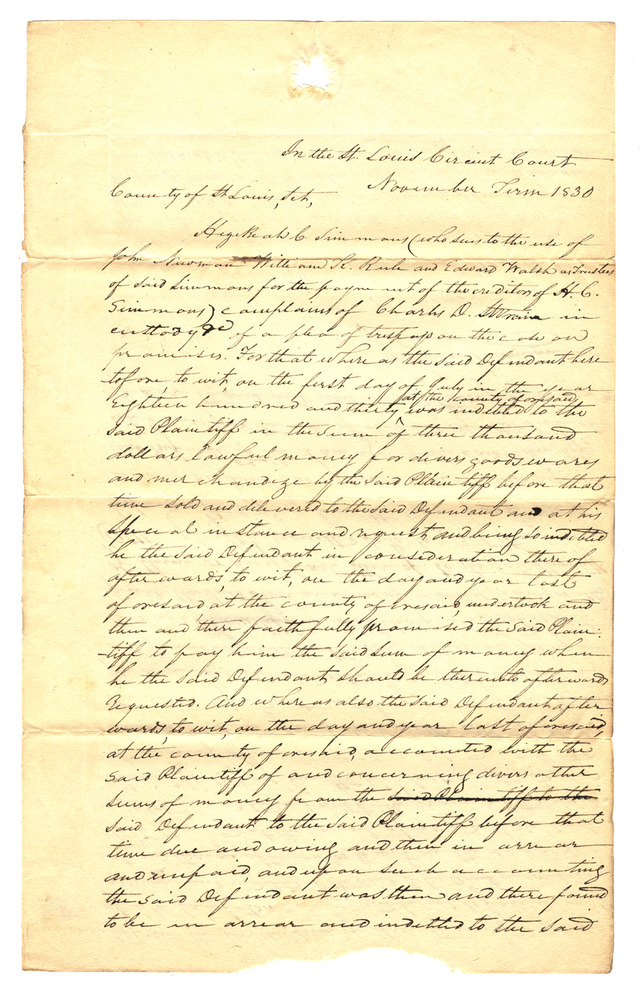 In the St. Louis Circuit Court
November Term 1830
County of St Louis, Sct,
Hezekiah C. Simmons (who sues to the use of
John Newman William K. Rule and Edward Walsh as Trustees
of said Simmons for the payment of the creditors of H. C.
Simmons) complains of Charles D. St Vrain in
custody &c of a plea of trespass on the case on
promises. For that where as the said Defendant here
tofore to wit, on the first day of July in the year
Eighteen hundred and thirty at the county aforesaid was indebted to the
said Plaintiff in the sum of three thousand
dollars lawful money for divers goods wares
and merchandize by the said Plaintiff before that
time sold and delivered to the said Defendant and at his
special instance and request, and being so indebted
he the said Defendant in consideration there of
afterwards, to wit, on the day and year last
aforesaid at the county aforesaid, undertook and
then and there faithfully promised the said Plain-
-tiff to pay him the said sum of money when
he the said Defendant should be thereunto afterwards
requested. And where as also the said Defendant after
wards, to wit, on the day and year last aforesaid,
at the county aforesaid, accounted with the
said Plaintiff of and concerning divers other
sums of money from the said Plaintiff to the
said Defendant to the said Plaintiff before that
time due and owing and then in arrear
and unpaid, and upon such accounting
the said Defendant was then and there found
to be in arrear and indebted to the said